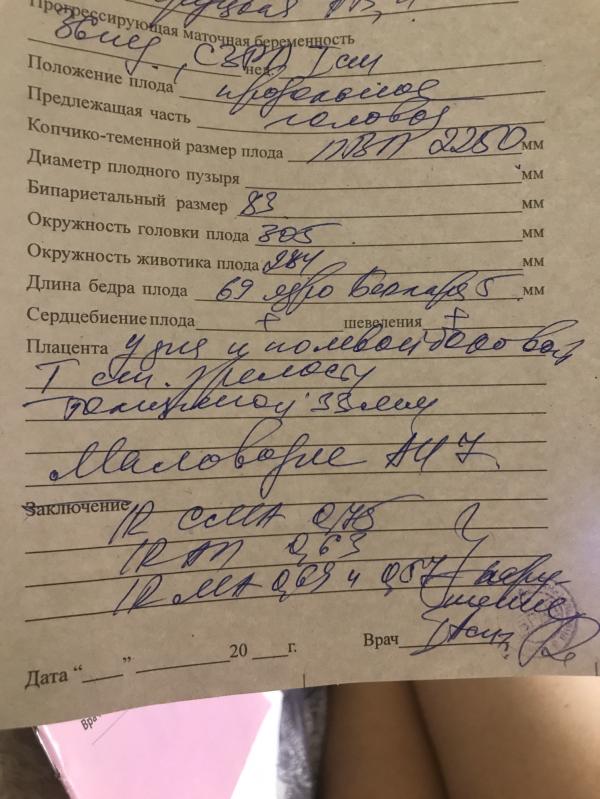 Прогрессирующая маточная беременность
36нед., СЗРП I ст
нед.
Положение плода продольное
Предлежащая часть головка
Копчико-теменной размер плода ПВП 2250 мм
Диаметр плодного пузыря мм
Бипариетальный размер 83 мм
Окружность головки плода 305 мм
Окружность животика плода 284 мм
Длина бедра плода 69 ядро Беклара 5 мм
Сердцебиение плода + шевеления +
Плацента у дна и по левой боковой
I ст. зрелости
толщиной 33 мм
Маловодие АИ 7
Заключение
IR СМА 0,75
IR АП 0,63
IR МА 0,64 и 0,57 нарушение
Врач
Дата “ ” 20 г.
Врач